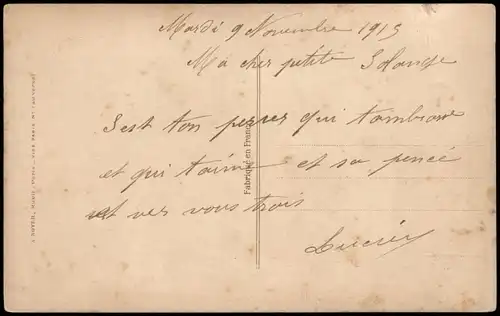 Mardi 9 Novembre 1915
Ma cher petite Solange
Sest ton perres qui tambrasse
et qui taime et sa pencé
et ver vous trois
Lucien
Fabriqué en France